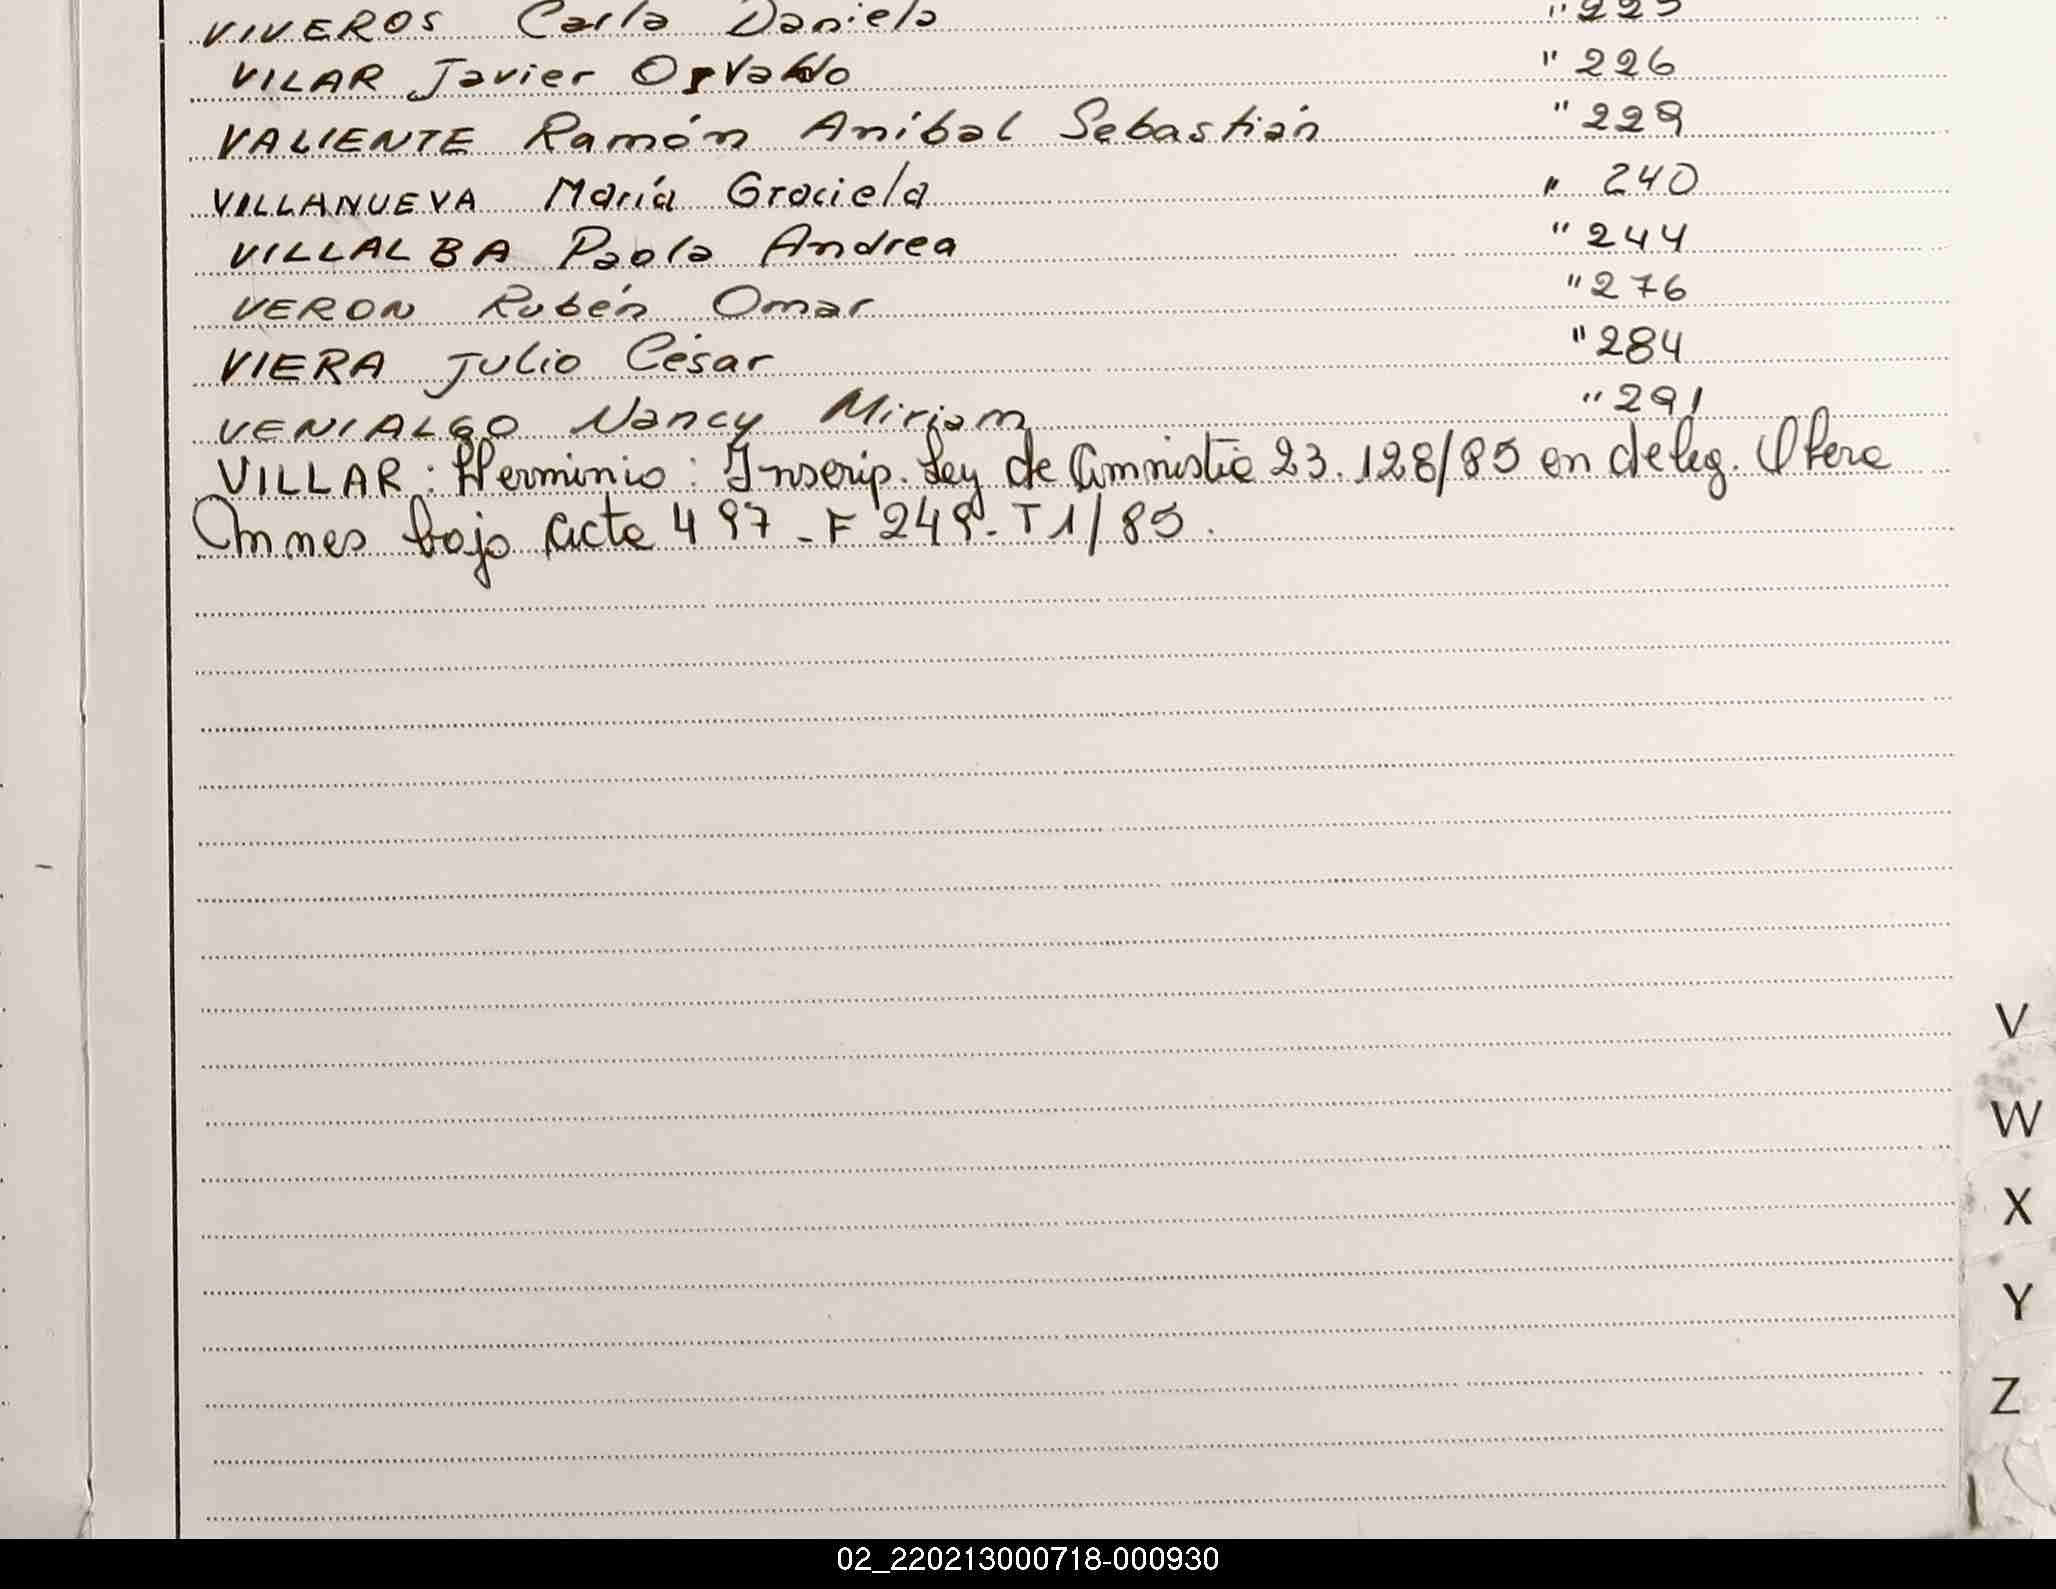 VIVEROS Carla Daniela " 225
VILAR Javier Osvaldo " 226
VALIENTE Ramón Aníbal Sebastián " 229
VILLANUEVA María Graciela " 240
VILLALBA Paola Andrea " 244
VERON Rubén Omar " 276
VIERA Julio César " 284
VENIALGO Nancy Miriam " 291
VILLAR: Herminio: Inscrip. Ley de Amnistia 23.128/85 en deleg. Obera
Mnes bajo acta 497 - F 249 - T 1/85.
V
W
X
Y
Z
02_220213000718-000930